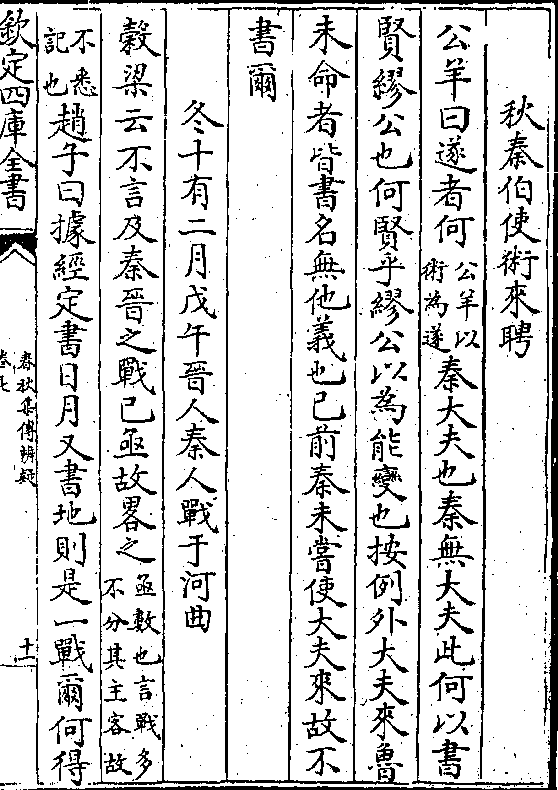 秋秦伯使術來聘
公羊曰遂者何公羊以術為遂秦大夫也秦無大夫此何以書
賢繆公也何賢乎繆公以為能變也按例外大夫來魯
未命者皆書名無他義也已前秦未嘗使大夫來故不
書爾
冬十有二月戊午晉人秦人戰于河曲
穀梁云不言及秦晉之戰已亟故畧之亟數也言戰多不分其主客故
不悉記也趙子曰據經定書日月又書地則是一戰爾何得
欽定四庫全書
春秋集傳辨疑
卷七
十一